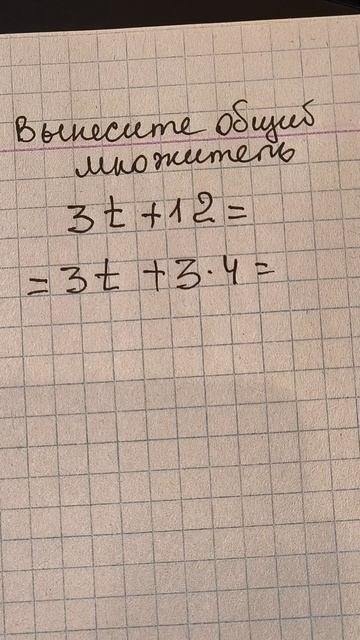 Вынесите общий
множитель
3t + 12 =
= 3t + 3·4 =